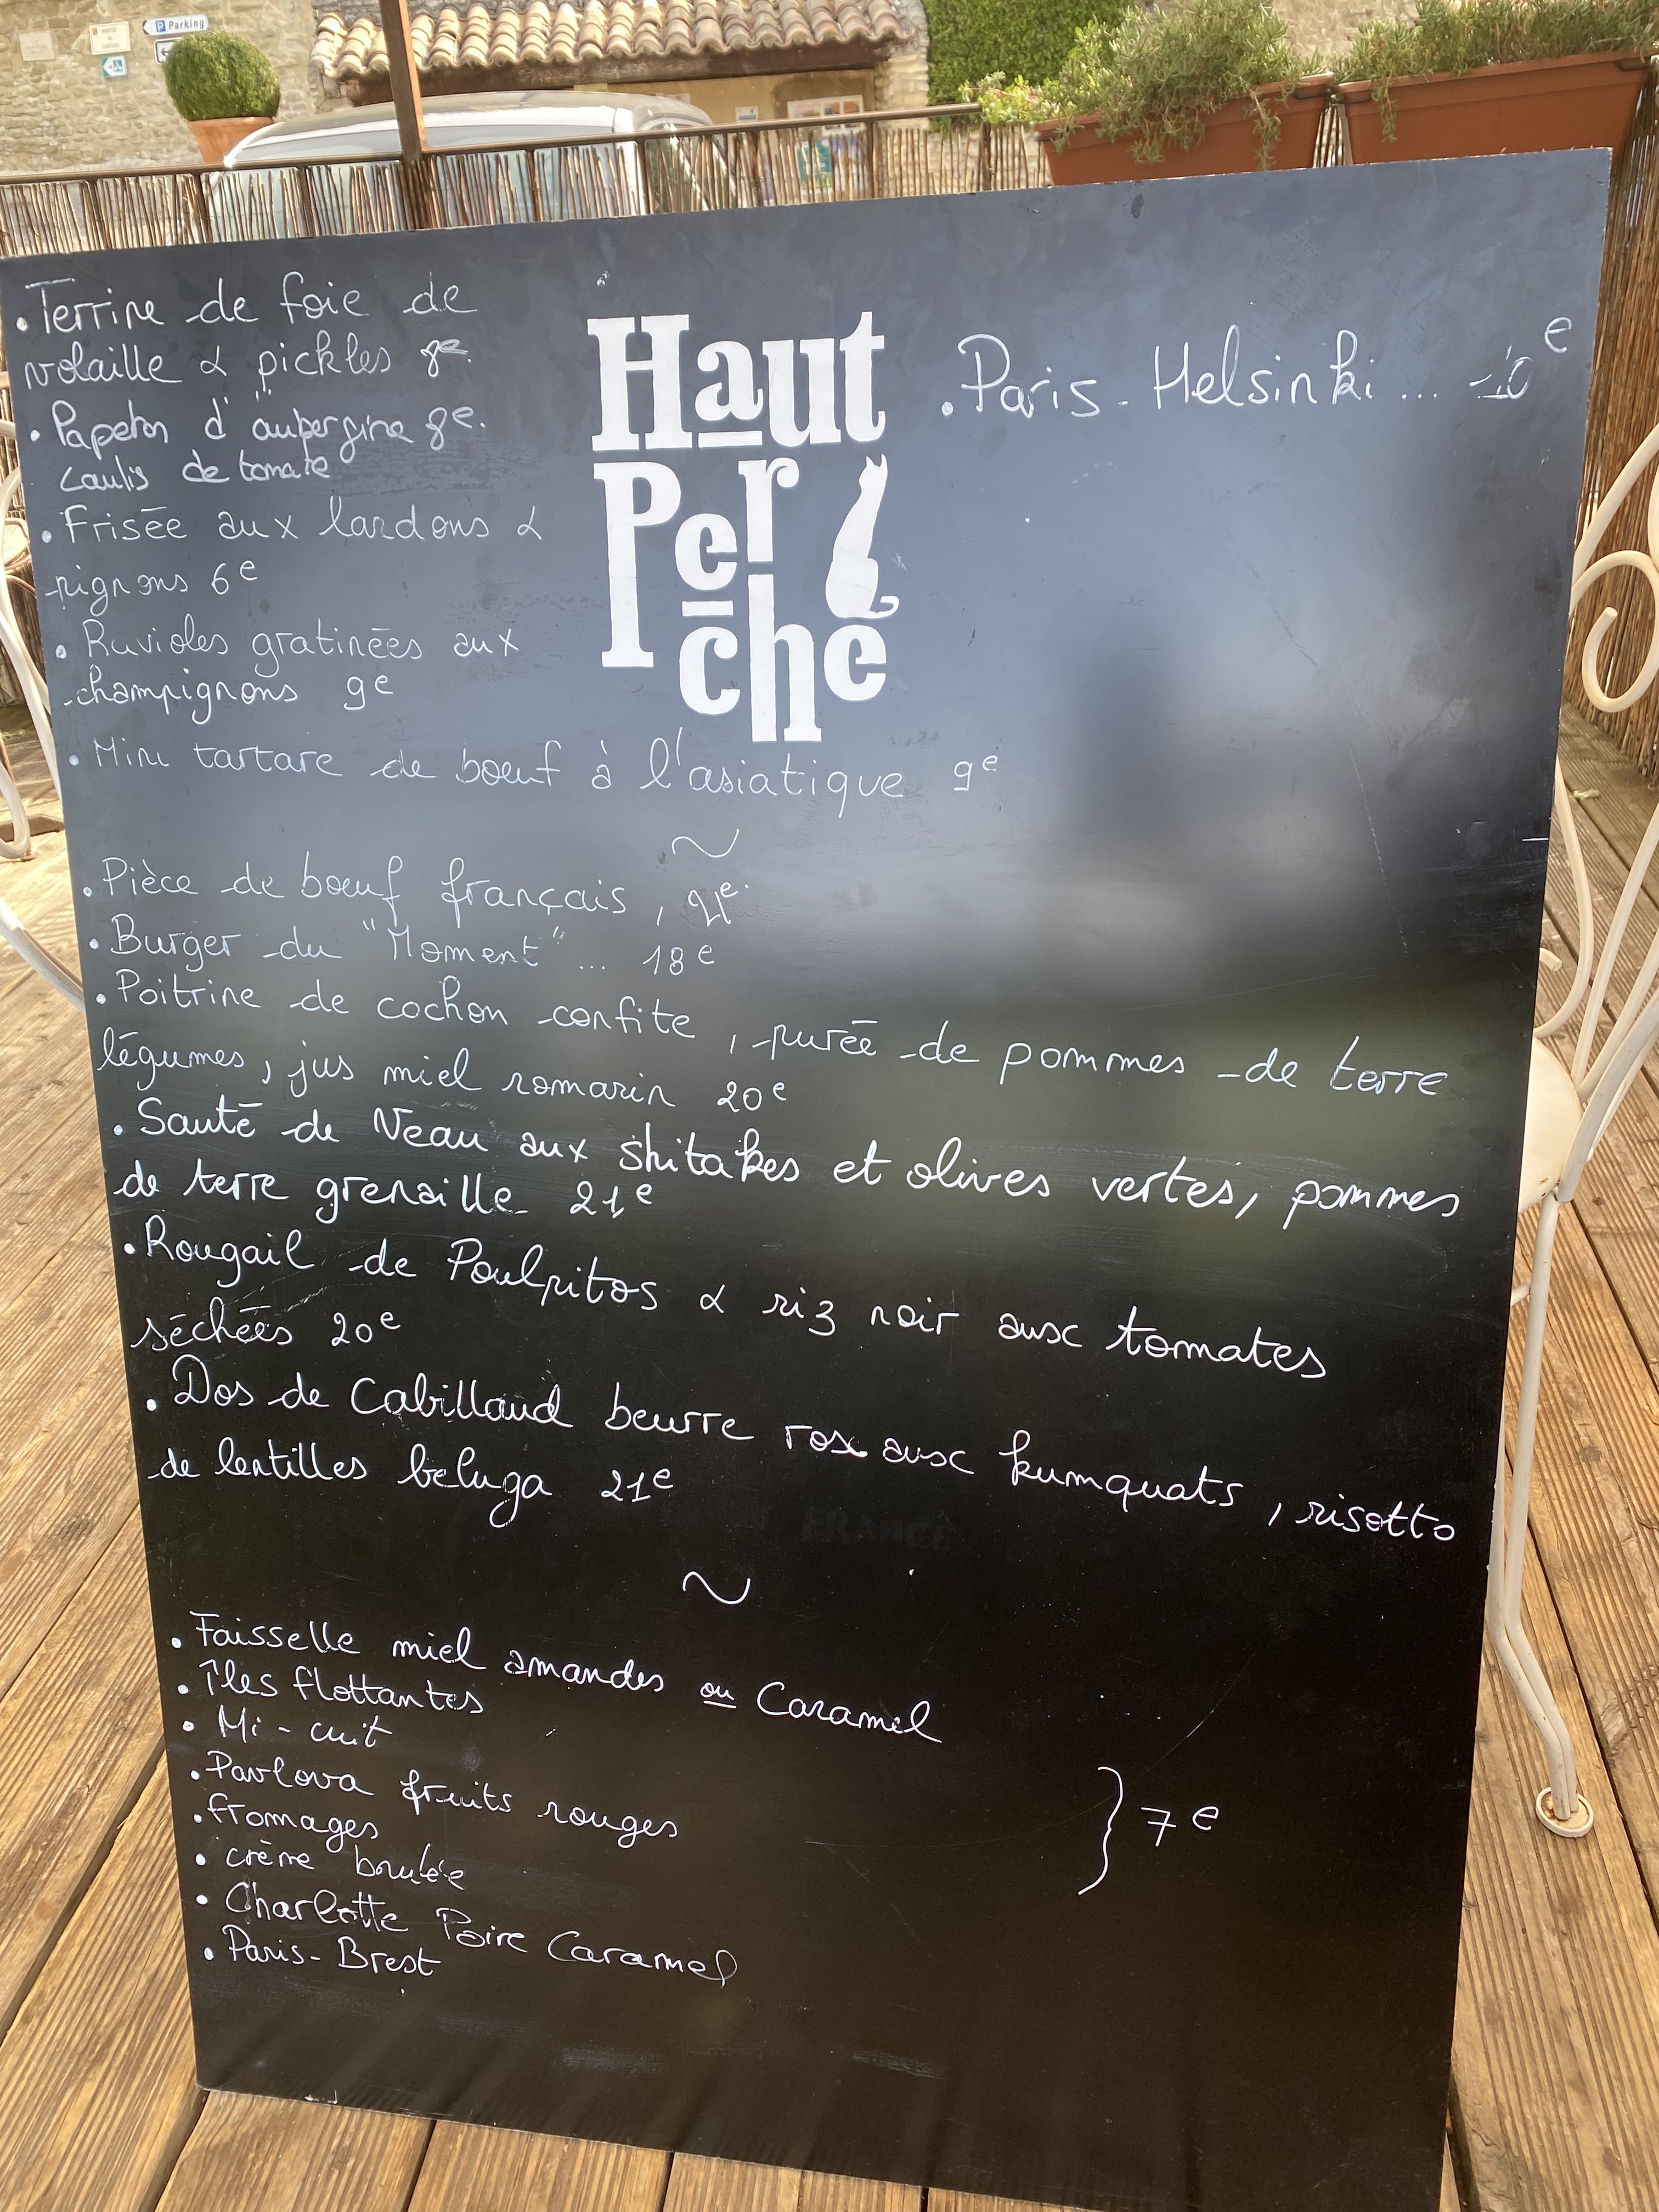 Parking
.Terrine de foie de
volaille & pickles 8e.
. Papeton d'aubergine 8e.
coulis de tomate
.Frisée aux lardons &
pignons 6e
. Ravioles gratinées aux
champignons 9e
. Mini tartare de bœuf à l'asiatique 9e
Haut
Per
ché
.Paris-Helsinki... 10e
~
.Pièce de bœuf français, 21e.
. Burger du "Moment"... 18e
.Poitrine de cochon confite, purée de pommes de terre
légumes, jus miel romarin 20e
. Sauté de Veau aux shitakes et olives vertes, pommes
de terre grenaille 21e
.Rougail de Poulpitos & riz noir aux tomates
séchées 20e
. Dos de Cabillaud beurre rose aux kumquats, risotto
de lentilles beluga 21e
~
. Faisselle miel amandes ou Caramel
. Îles flottantes
. Mi-cuit
. Pavlova fruits rouges
.fromages
. crème brulée
. Charlotte Poire Caramel
. Paris-Brest
} 7e